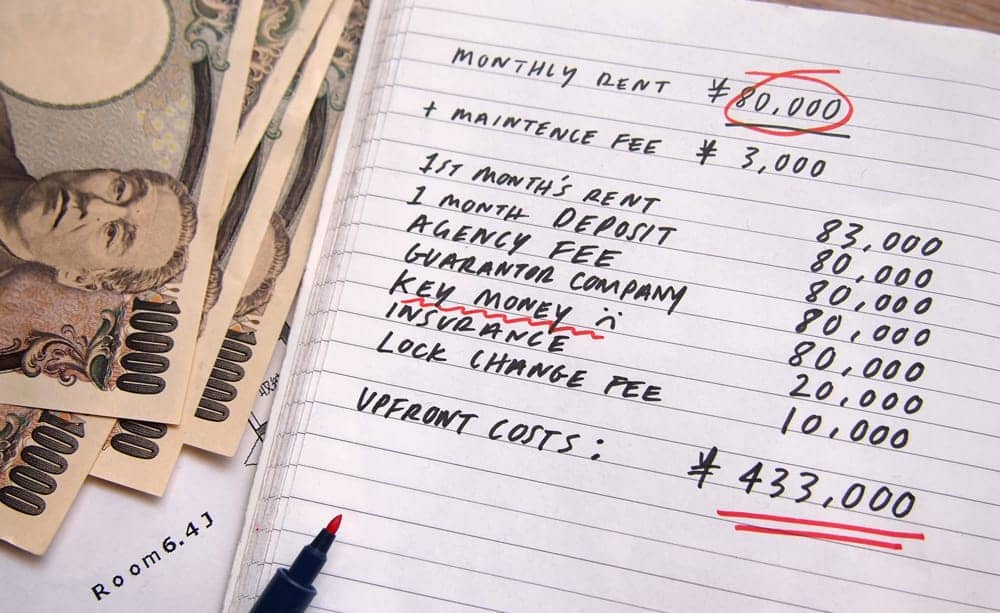 MONTHLY RENT ¥ 80,000
+ MAINTENCE FEE ¥ 3,000
1ST MONTH'S RENT 83,000
1 MONTH DEPOSIT 80,000
AGENCY FEE 80,000
GUARANTOR COMPANY 80,000
KEY MONEY 80,000
INSURANCE 20,000
LOCK CHANGE FEE 10,000
UPFRONT COSTS: ¥ 433,000
10000
10000
10000
10000
Room6.4J